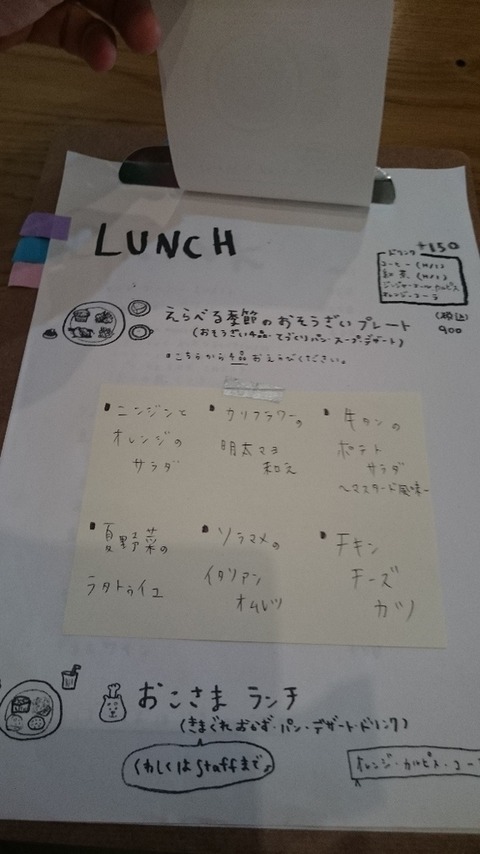 LUNCH
ドリンク +150
コーヒー (H/I)
紅茶 (H/I)
ジンジャーエール カルピス
オレンジ・コーラ
えらべる季節のおそうざいプレート (税込)
(おそうざい4品・てづくりパン・スープ・デザート) 900
*こちらから4品おえらびください。
・ニンジンと
オレンジの
サラダ
・カリフラワーの
明太マヨ
和え
・牛タンの
ポテト
サラダ
〜マスタード風味〜
・夏野菜の
ラタトゥイユ
・ソラマメの
イタリアン
オムレツ
・チキン
チーズ
カツ
おこさま ランチ
(きまぐれおかず・パン・デザート・ドリンク)
くわしくはStaffまで♪
オレンジ・カルピス・コー